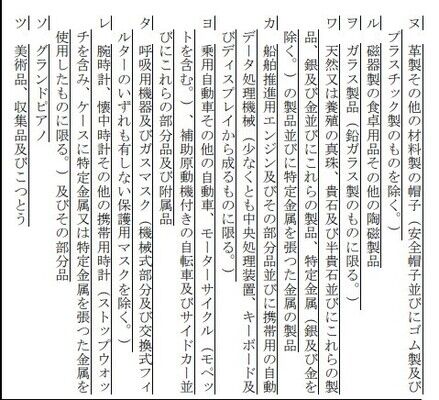 ヌ 革製その他の材料製の帽子(安全帽子並びにゴム製及び
プラスチック製のものを除く。)
ル 磁器製の食卓用品その他の陶磁製品
ヲ ガラス製品(鉛ガラス製のものに限る。)
ワ 天然又は養殖の真珠、貴石及び半貴石並びにこれらの製
品、銀及び金並びにこれらの製品、特定金属(銀及び金を
除く。)の製品並びに特定金属を張つた金属の製品
カ 船舶推進用エンジン及びその部分品並びに携帯用の自動
データ処理機械(少なくとも中央処理装置、キーボード及
びディスプレイから成るものに限る。)
ヨ 乗用自動車その他の自動車、モーターサイクル(モペッ
トを含む。)、補助原動機付きの自転車及びサイドカー並
びにこれらの部分品及び附属品
タ 呼吸用機器及びガスマスク(機械式部分及び交換式フィ
ルターのいずれも有しない保護用マスクを除く。)
レ 腕時計、懐中時計その他の携帯用時計(ストップウォッ
チを含み、ケースに特定金属又は特定金属を張つた金属を
使用したものに限る。)及びその部分品
ソ グランドピアノ
ツ 美術品、収集品及びこつとう